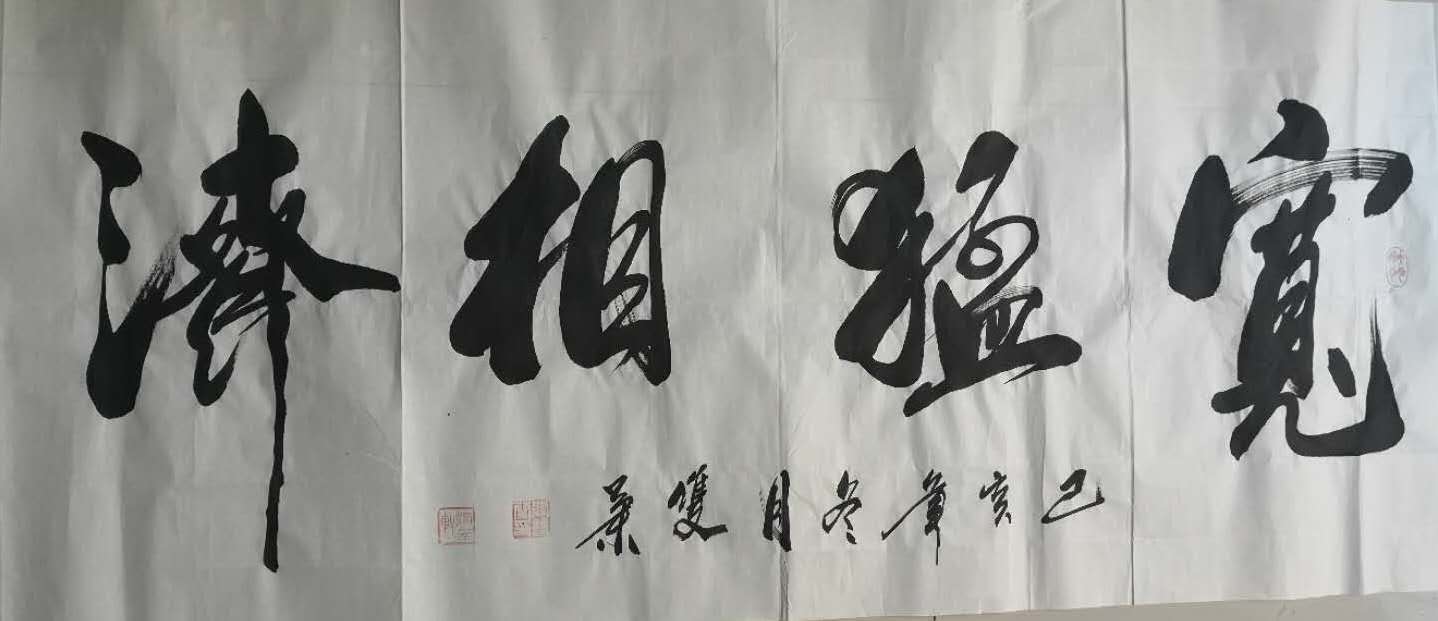 寬猛相濟
己亥年冬月雙葉